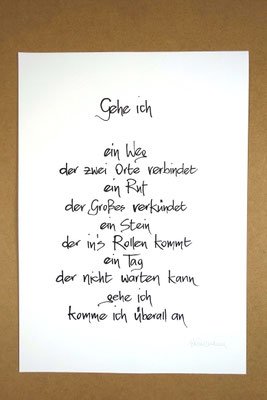 Gehe ich
ein Weg
der zwei Orte verbindet
ein Ruf
der Großes verkündet
ein Stein
der in's Rollen kommt
ein Tag
der nicht warten kann
gehe ich
komme ich überall an